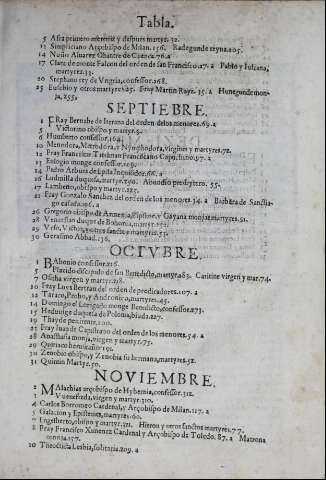 Tabla.
5 Afra primero meretriz y despues martyr. 32.
13 Simpliciano Arçobispo de Milan. 156. Radegunde reyna. 205.
14 Nuño Aluarez Obanre de Cuenca. 76. a
17 Clara de monte Falcon del orden de san Francisco. 17. a Pablo y Iuliana, martyres. 33.
20 Stephano rey de Vngria, confessor. 268.
25 Eusebio y otros martyres. 25. Fray Martin Ruyz. 35. a Hunegunde monja, 255.
SEPTIEBRE.
1 FRay Bernabe de Iterano del orden de los menores. 69. a
5 Victorino obispo y martyr. 9.
6 Humberto confessor. 164.
10 Menodora, Metrodora, y Nymphodora, virgines y martyres. 72.
12 Fray Francisco Titelman Franciscano Capuchino. 97. a
13 Eulogio monge confessor. 19.
14 Pedro Arbues de Epila Inquisidor. 66. a
16 Ludmilla duquesa, martyr. 250. Abundio presbytero. 55.
17 Lamberto, obispo y martyr. 225.
21 Fray Gonzalo Sanchez del orden de los menores. 34. a Barbara de Sanctiago casada. 106. a
26 Gregorio obispo de Armenia, Ripsine, y Gayana monjas martyres. 51.
28 Venceslao duque de Bohemia, martyr. 252.
29 Vrso, Victor, y otros sanctos martyres. 53.
30 Gerasimo Abbad. 136.
OCTVBRE.
1 BAbonio confessor. 216.
5 Placido discipulo de san Benedicto, martyr. 83. Caritine virgen y mar. 74.
7 Ositha virgen y martyr. 218.
10 Fray Luys Bertran del orden de predicadores. 107. a
12 Taraco, Probo, y Andronico, martyres. 45.
14 Domingo Lorigado monge Benedicto, confessor. 273.
15 Heduuige duquesa de Polonia, biuda. 127.
19 Thays de penitente. 100.
23 Fray Iuan de Capistrano del orden de los menores. 54. a
28 Anastasia monja, virgen y martyr. 75.
29 Quiriaco hermitaño. 191.
30 Zenobio obispo, y Zenobia su hermana, martyres. 52.
31 Quintin Martyr. 50.
NOVIEMBRE.
2 MAlachias arçobispo de Hybernia, confessor. 312.
3 Vuenefreda, virgen y martyr. 310.
4 Carlos Borromeo Cardenal, y Arçobispo de Milan. 117. a
5 Galacion y Epistemes, martyres. 60.
7 Engelberto, obispo y martyr. 321. Hieron y otros sanctos martyres. 77.
8 Fray Francisco Ximenez Cardenal y Arçobispo de Toledo. 87. a Matrona monja. 157.
10 Theoctista Lesbia, solitaria. 209. a